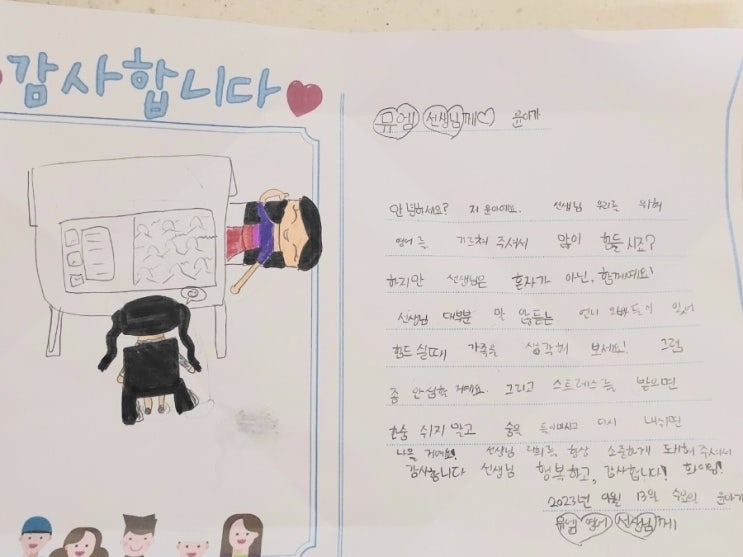 감사합니다
뮤엠 선생님께♡ 윤아가
안녕하세요? 저 윤아예요. 선생님 우리를 위해
영어를 가르쳐 주셔서 많이 힘들시죠?
하지만 선생님은 혼자가 아닌, 함께예요!
선생님 대부분 말 않듣는 언니 오빠들이 있어
힘드실때 가족을 생각해 보세요! 그럼
좀 안심할 거예요. 그리고 스트레스를 받으면
한숨 쉬지 말고 숨을 들이마시고 다시 내쉬면
나을 거예요! 선생님 저희를 항상 소중하게 대해 주셔서
감사합니다 선생님 행복하고, 감사합니다! 화이팅!
2023년 9월 13일 수요일 윤아가
뮤엠 영어 선생님께